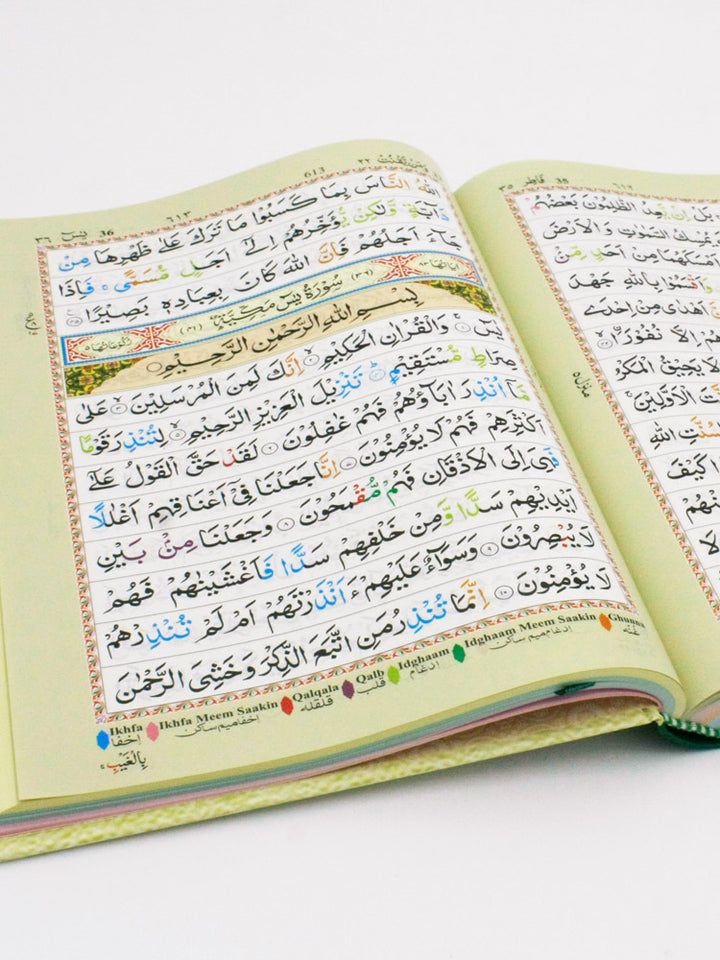 ٣٦ يٰسٓ 36
٦١٣
613
وَمَنْ يَّقْنُتْ ٢٢
اللّٰهُ النَّاسَ بِمَا كَسَبُوْا مَا تَرَكَ عَلٰى ظَهْرِهَا مِنْ
دَآبَّةٍ وَّلٰكِنْ يُّؤَخِّرُهُمْ اِلٰٓى اَجَلٍ مُّسَمًّى ۚ فَاِذَا
جَآءَ اَجَلُهُمْ فَاِنَّ اللّٰهَ كَانَ بِعِبَادِهٖ بَصِيْرًا ۟﴿٤٥﴾
اٰيَاتُهَا ٨٣ (٣٦) سُوْرَةُ يٰسٓ مَكِّيَّةٌ (٤١) رُكُوْعَاتُهَا ٥
بِسْمِ اللّٰهِ الرَّحْمٰنِ الرَّحِيْمِ ۟
يٰسٓ ۟﴿١﴾ وَالْقُرْاٰنِ الْحَكِيْمِ ۟﴿٢﴾ اِنَّكَ لَمِنَ الْمُرْسَلِيْنَ ۟﴿٣﴾ عَلٰى
صِرَاطٍ مُّسْتَقِيْمٍ ۟﴿٤﴾ تَنْزِيْلَ الْعَزِيْزِ الرَّحِيْمِ ۟﴿٥﴾ لِتُنْذِرَ قَوْمًا
مَّآ اُنْذِرَ اٰبَآؤُهُمْ فَهُمْ غٰفِلُوْنَ ۟﴿٦﴾ لَقَدْ حَقَّ الْقَوْلُ عَلٰٓى
اَكْثَرِهِمْ فَهُمْ لَا يُؤْمِنُوْنَ ۟﴿٧﴾ اِنَّا جَعَلْنَا فِيْٓ اَعْنَاقِهِمْ اَغْلٰلًا
فَهِيَ اِلَى الْاَذْقَانِ فَهُمْ مُّقْمَحُوْنَ ۟﴿٨﴾ وَجَعَلْنَا مِنْۢ بَيْنِ
اَيْدِيْهِمْ سَدًّا وَّمِنْ خَلْفِهِمْ سَدًّا فَاَغْشَيْنٰهُمْ فَهُمْ
لَا يُبْصِرُوْنَ ۟﴿٩﴾ وَسَوَآءٌ عَلَيْهِمْ ءَاَنْذَرْتَهُمْ اَمْ لَمْ تُنْذِرْهُمْ
لَا يُؤْمِنُوْنَ ۟﴿١٠﴾ اِنَّمَا تُنْذِرُ مَنِ اتَّبَعَ الذِّكْرَ وَخَشِيَ الرَّحْمٰنَ
Ikhfa Ikhfa Meem Saakin Qalqala Qalb Idghaam Idghaam Meem Saakin Ghunna
اِخفا اخفامیم ساکن قلقله قلب ادغام ادغام میم ساکن غنّه
بِالْغَيْبِ ۚ
٣٥ فَاطِر 35
٦١٢
بَلْ اِنْ يَّعِدُ الظّٰلِمُوْنَ بَعْضُهُمْ
يُمْسِكُ السَّمٰوٰتِ وَالْاَرْضَ
اَمْسَكَهُمَا مِنْ اَحَدٍ مِّنْ
وَاَقْسَمُوْا بِاللّٰهِ جَهْدَ
اَهْدٰى مِنْ اِحْدَى
هُمْ اِلَّا نُفُوْرًا
وَلَا يَحِيْقُ الْمَكْرُ
الْاَوَّلِيْنَ
لِسُنَّتِ اللّٰهِ
كَيْفَ
مِنْهُمْ
منزل ٥